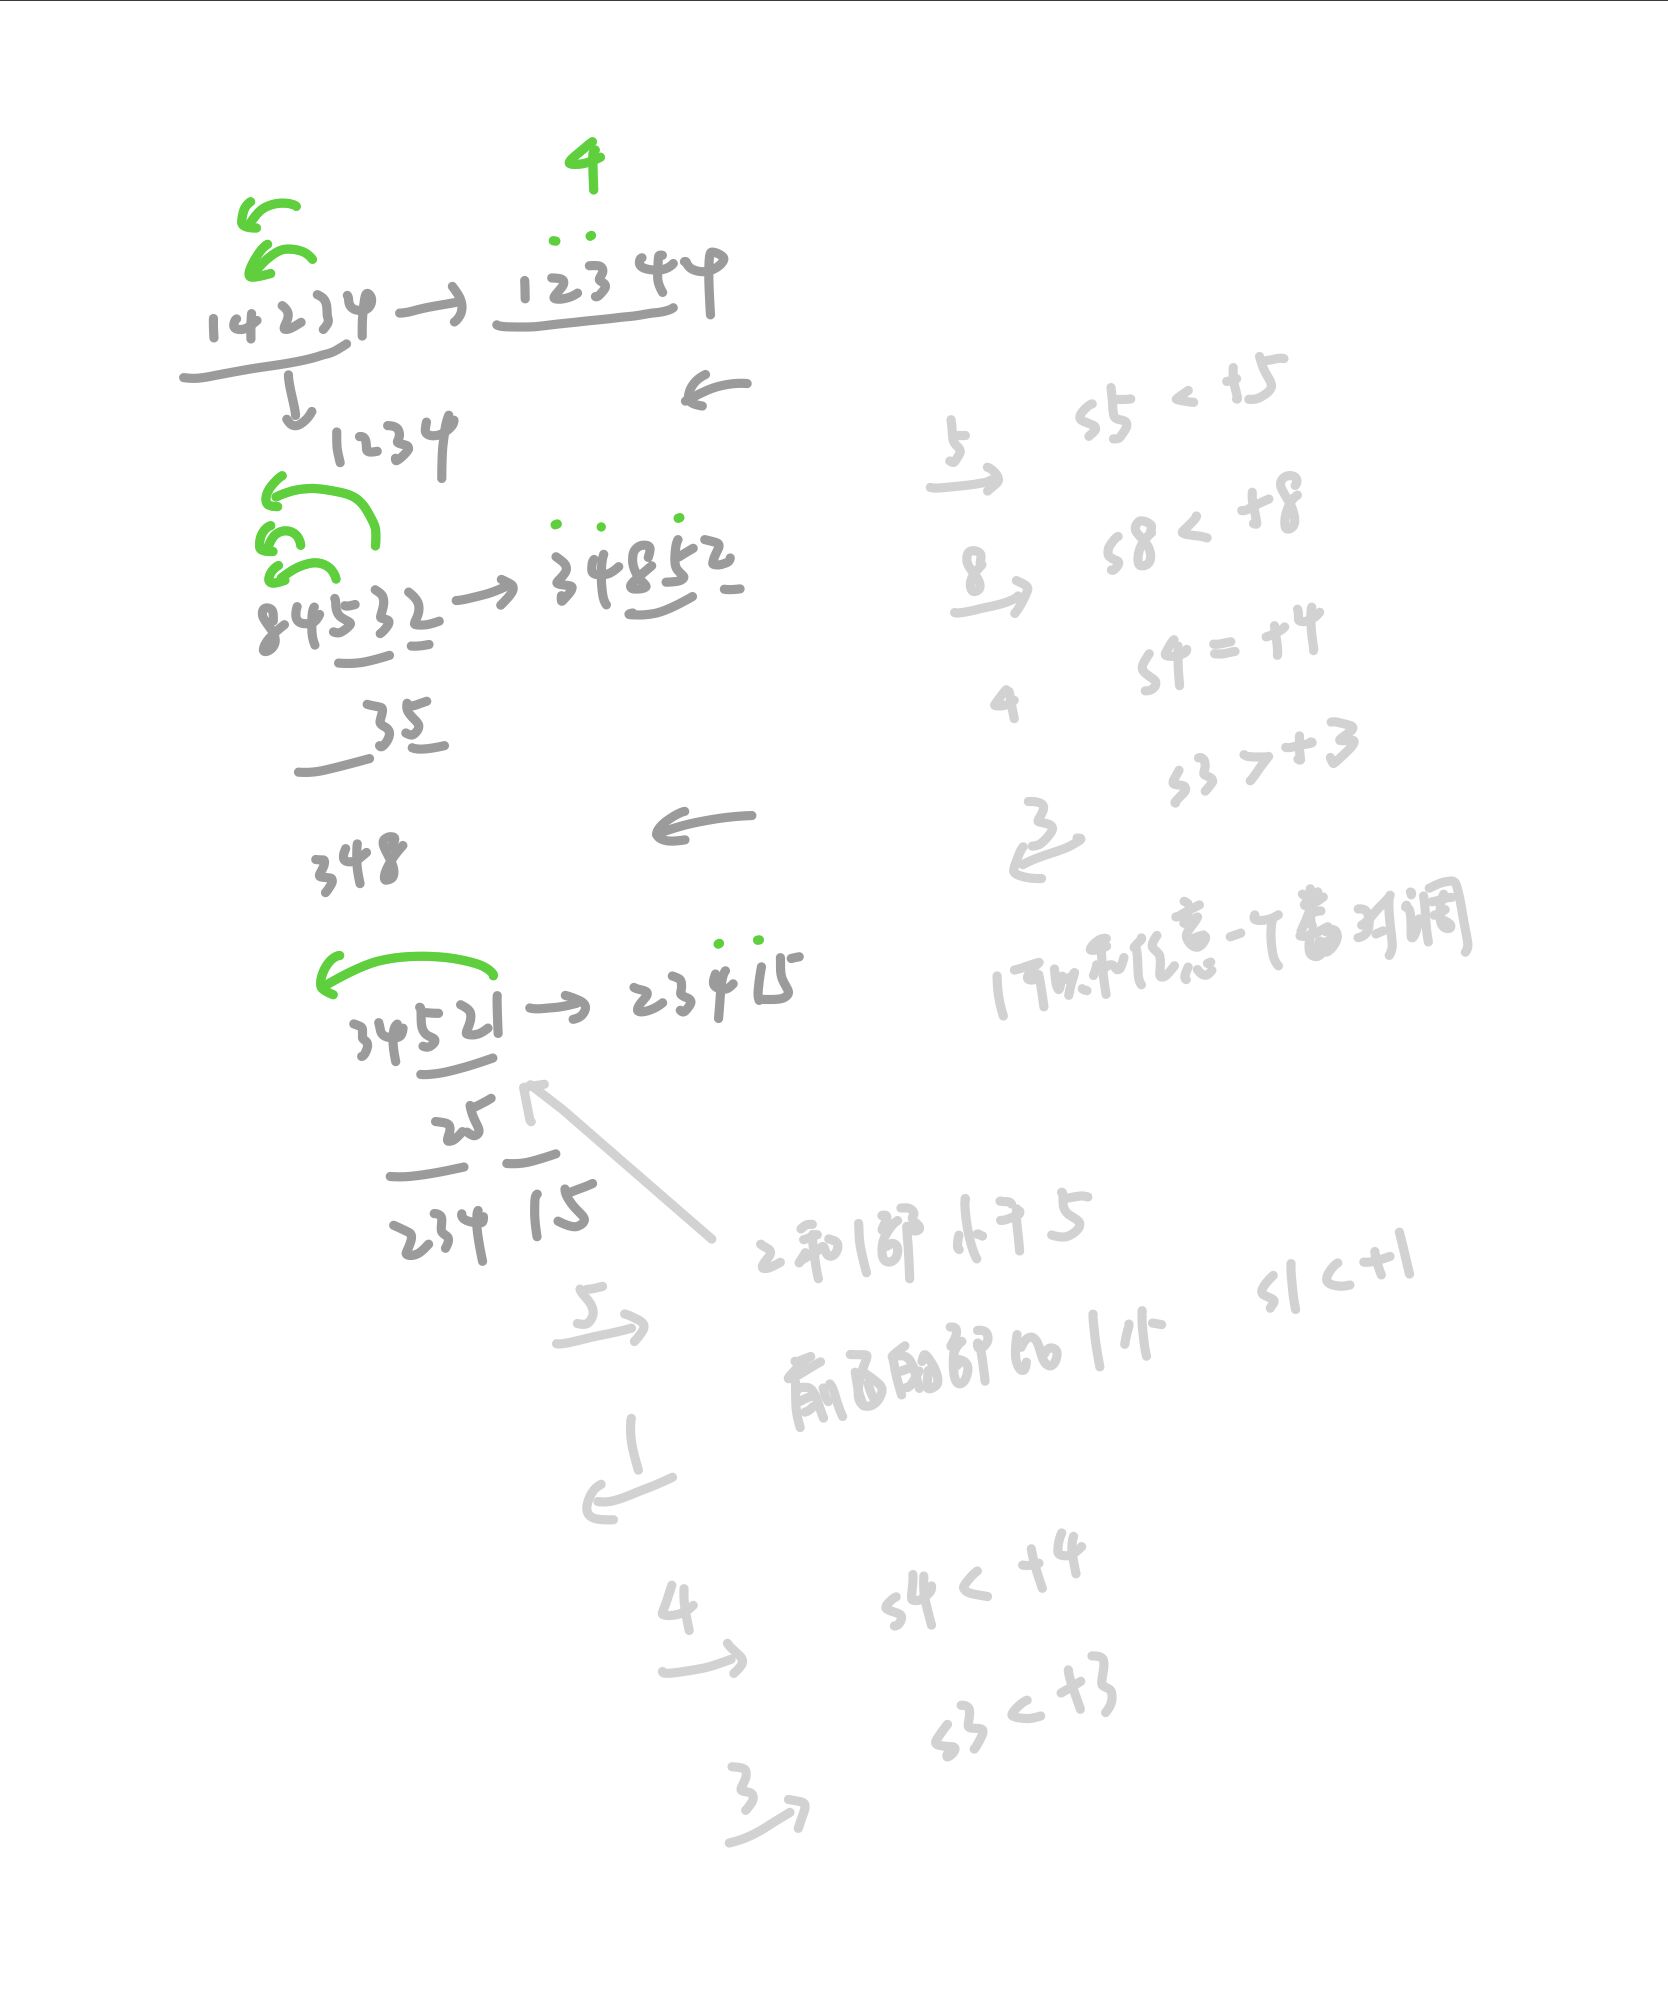 4
14234 → 12344
1234
84532 → 34852
35
348
34521 → 23415
25
234 15
5 s5 < t5
8 s8 < t8
4 s4 = t4
3 s3 > t3
对调
2和1都小于5
5
1 s1 < t1
4 s4 < t4
3 s3 < t3